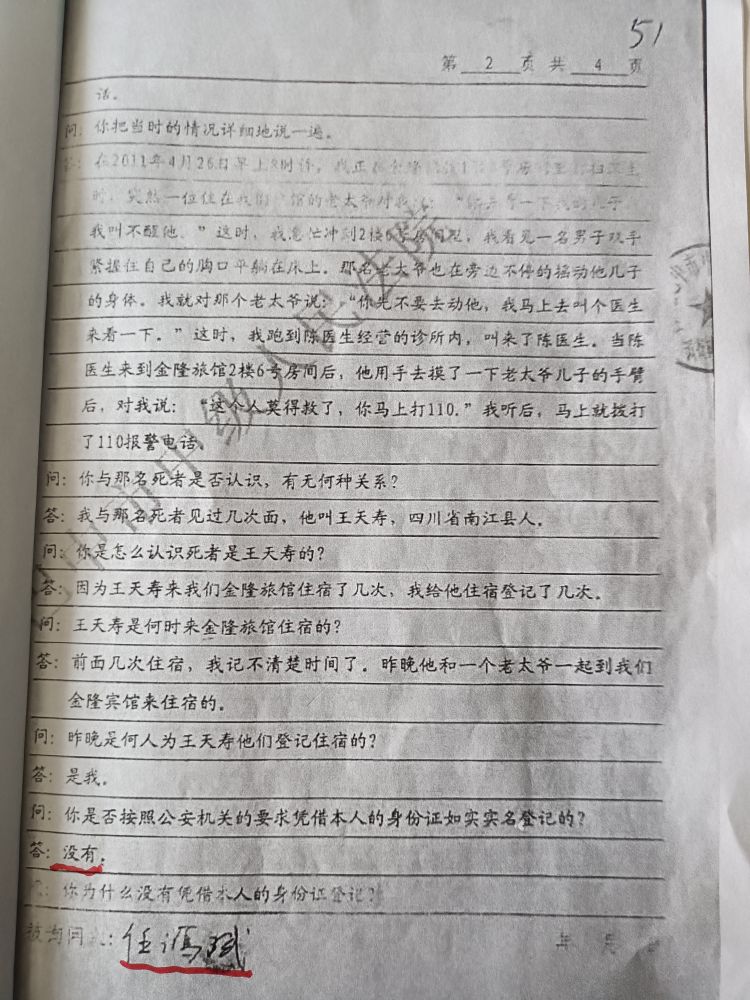 51
第 2 页 共 4 页
话。
问：你把当时的情况详细地说一遍。
答：在2011年4月26日早上8时许，我正在金隆旅馆1
时，突然一位住在我们 馆的老太爷对我说：“
我叫不醒他。”这时，我急忙冲到2楼6号房间里，我看见一名男子双手
紧握住自己的胸口平躺在床上。那名老太爷也在旁边不停的摇动他儿子
的身体。我就对那个老太爷说：“你先不要去动他，我马上去叫个医生
来看一下。”这时，我跑到陈医生经营的诊所内，叫来了陈医生。当陈
医生来到金隆旅馆2楼6号房间后，他用手去摸了一下老太爷儿子的手臂
后，对我说：“这个人莫得救了，你马上打110.”我听后，马上就拨打
了110报警电话。
问：你与那名死者是否认识，有无何种关系？
答：我与那名死者见过几次面，他叫王天寿，四川省南江县人。
问：你是怎么认识死者是王天寿的？
答：因为王天寿来我们金隆旅馆住宿了几次，我给他住宿登记了几次。
问：王天寿是何时来金隆旅馆住宿的？
答：前面几次住宿，我记不清楚时间了。昨晚他和一个老太爷一起到我们
金隆宾馆来住宿的。
问：昨晚是何人为王天寿他们登记住宿的？
答：是我。
问：你是否按照公安机关的要求凭借本人的身份证如实实名登记的？
答：没有。
问：你为什么没有凭借本人的身份证登记？
被询问人： 年 月 日
市中级人民法院